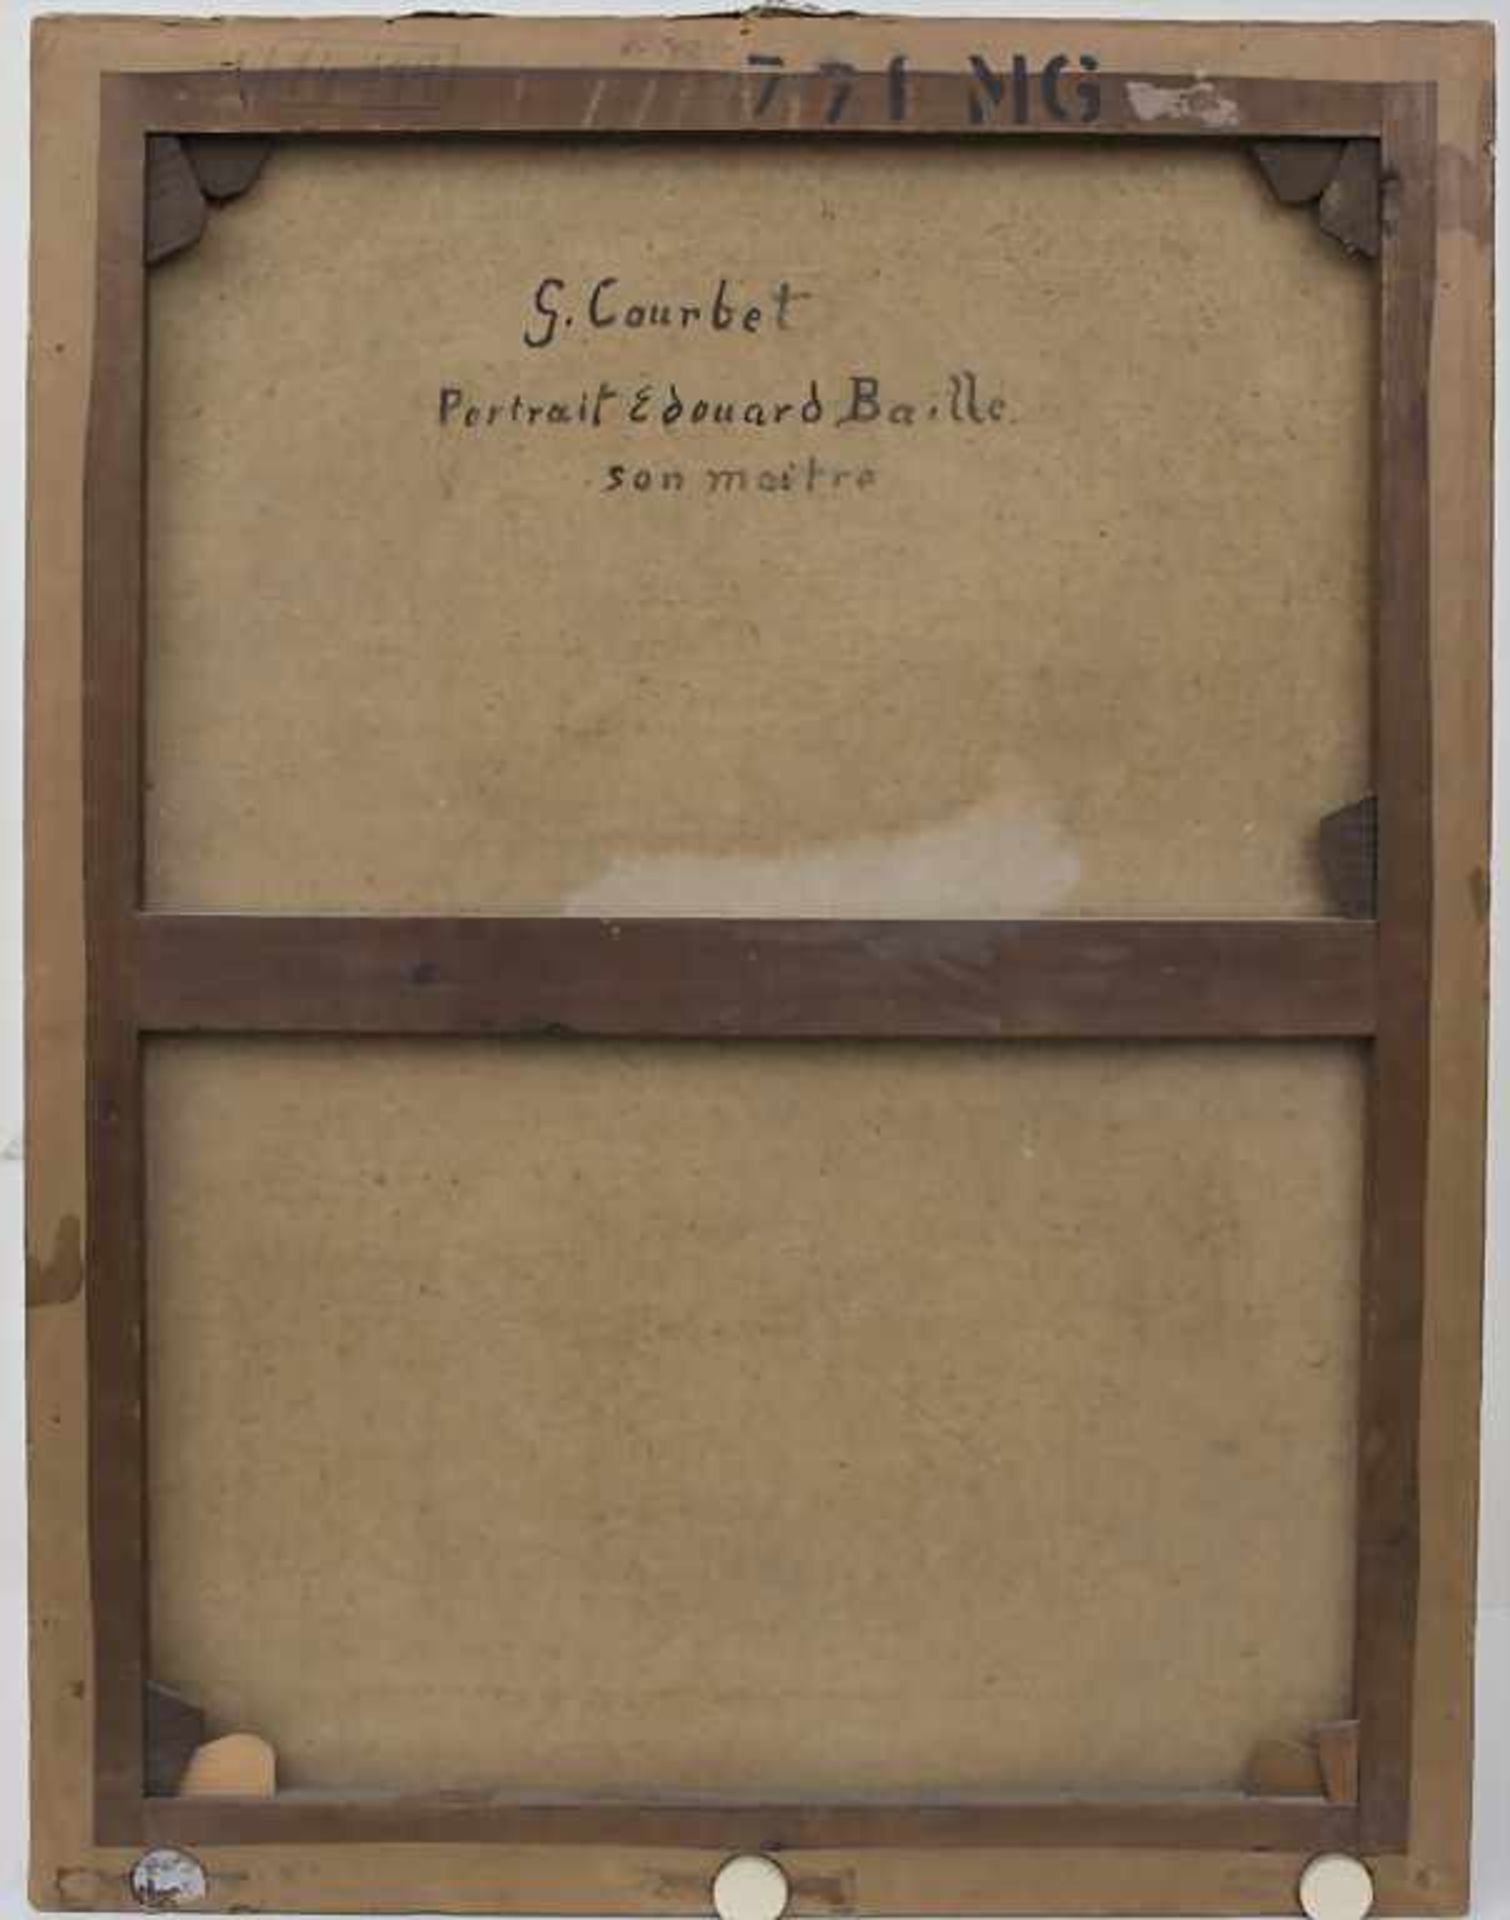 791 MG
G. Courbet
Portrait Edouard Baille
son maitre